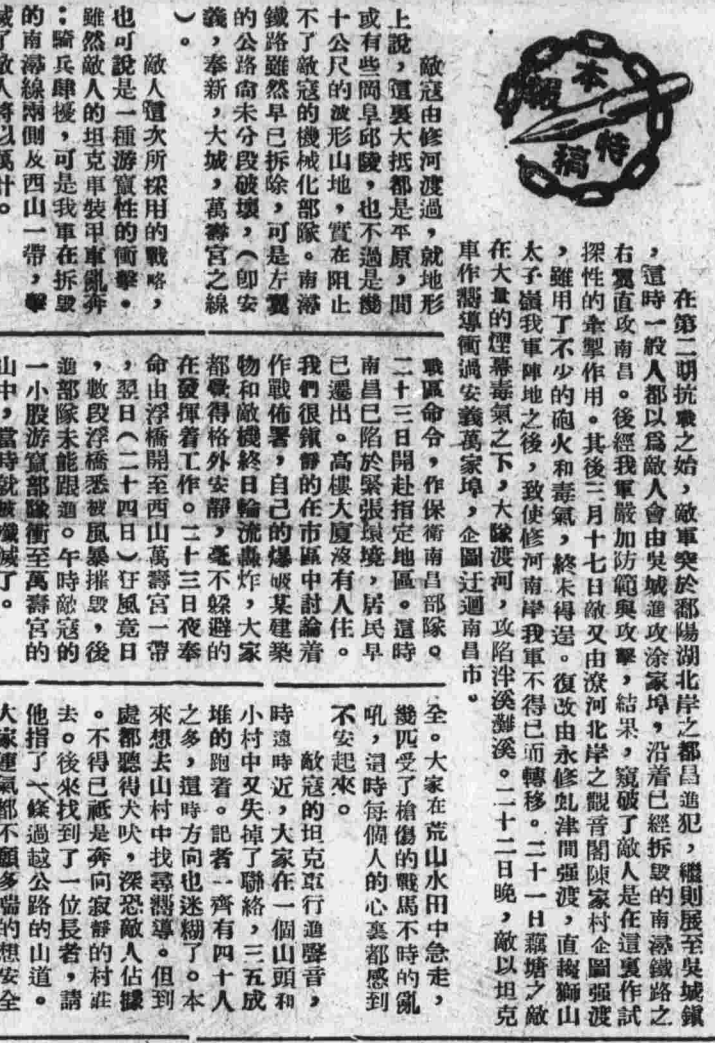 本報特稿
在第二期抗戰之始，敵軍突於鄱陽湖北岸之都昌進犯，繼則展至吳城鎮
，這時一般人都以爲敵人會由吳城進攻涂家埠，沿着已經拆毀的南潯鐵路之
右翼直攻南昌。後經我軍嚴加防範與攻擊，結果，窺破了敵人是在這裏作試
探性的牽掣作用。其後三月十七日敵又由潦河北岸之觀音閣陳家村企圖强渡
，雖用了不少的砲火和毒氣，終未得逞。復改由永修虬津間强渡，直搗獅山
太子嶺我軍陣地之後，致使修河南岸我軍不得已而轉移。二十一日藕塘之敵
在大量的煙幕毒氣之下，大隊渡河，攻陷泮溪灘溪。二十二日晚，敵以坦克
車作嚮導衝過安義萬家埠，企圖迂迴南昌市。
敵寇由修河渡過，就地形
上說，這裏大抵都是平原，間
或有些岡阜邱陵，也不過是幾
十公尺的波形山地，實在阻止
不了敵寇的機械化部隊。南潯
鐵路雖然早已拆除，可是左翼
的公路尙未分段破壞，（卽安
義，奉新，大城，萬壽宮之線
）。
敵人這次所採用的戰略，
也可說是一種游竄性的衝擊。
雖然敵人的坦克車裝甲車亂奔
；騎兵肆擾，可是我軍在拆毀
的南潯線兩側及西山一帶，擊
滅了敵人將以萬計。
戰區命令，作保衛南昌部隊。
二十三日開赴指定地區。這時
南昌已陷於緊張環境，居民早
已遷出。高樓大廈沒有人住。
我們很鎮靜的在市區中討論着
作戰佈署，自己的爆破某建築
物和敵機終日輪流轟炸，大家
都覺得格外安靜，毫不躲避的
在發揮着工作。二十三日夜奉
命由浮橋開至西山萬壽宮一帶
，翌日（二十四日）狂風竟日
，數段浮橋悉被風暴摧毀，後
進部隊未能跟進。午時敵寇的
一小股游竄部隊衝至萬壽宮的
山中，當時就被殲滅了。
全。大家在荒山水田中急走，
幾匹受了槍傷的戰馬不時的亂
吼，這時每個人的心裏都感到
不安起來。
敵寇的坦克車行進聲音，
時遠時近，大家在一個山頭和
小村中又失掉了聯絡，三五成
堆的跑着。記者一齊有四十人
之多，這時方向也迷糊了。本
來想去山村中找尋嚮導。但到
處都聽得犬吠，深恐敵人佔據
。不得已祗是奔向寂靜的村莊
去。後來找到了一位長者，請
他指了一條過越公路的山道。
大家運氣都不願多喘的想安全